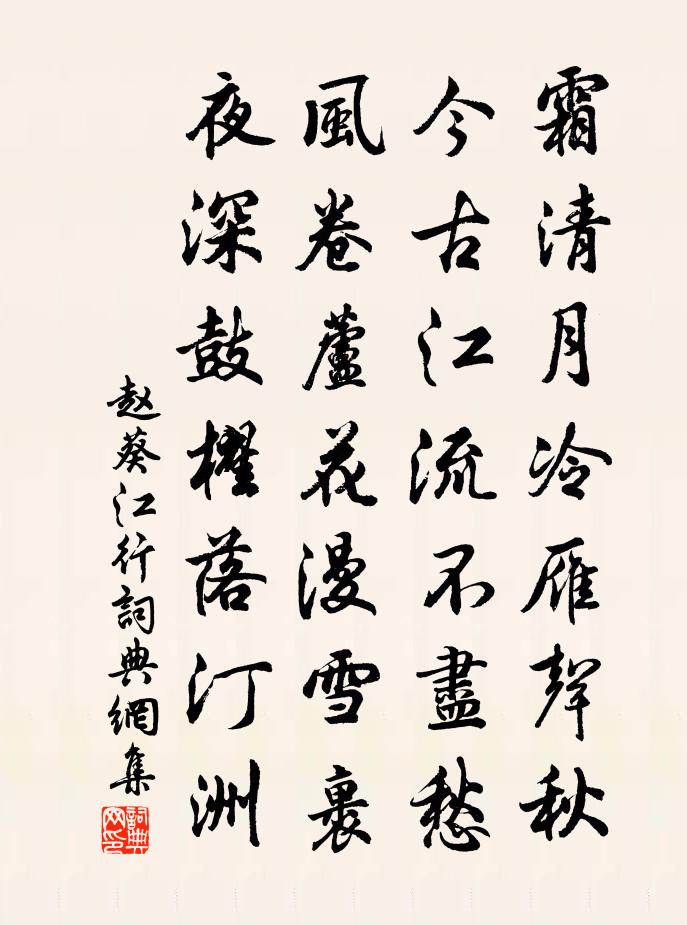 霜清月冷雁聲秋
今古江流不盡愁
風卷蘆花漫雪裹
夜深鼓櫂落汀洲
赵葵江行詞典網集
詞典
网印